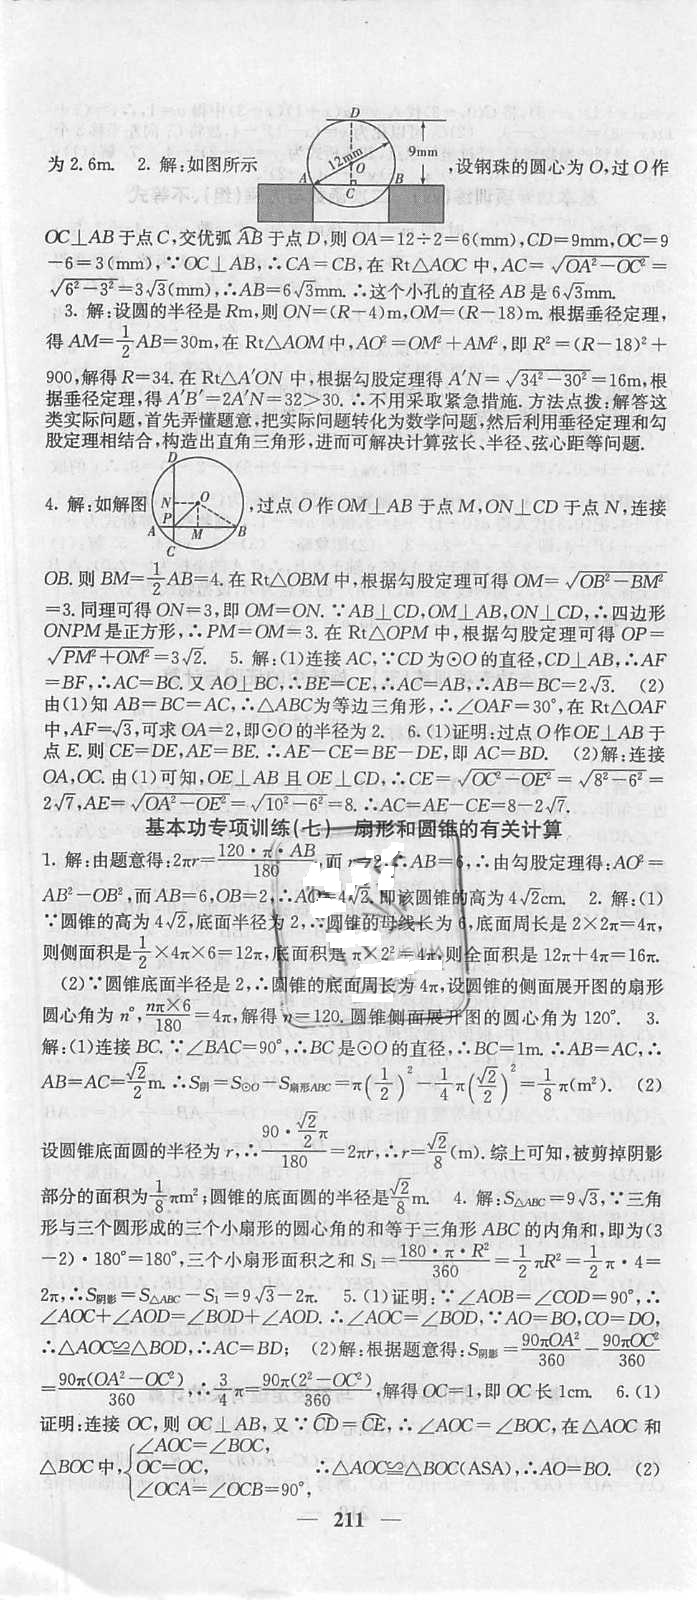 D
12mm
9mm
O
A
C
B
为2.6m. 2. 解:如图所示 ,设钢珠的圆心为O,过O作
OC⊥AB于点C,交优弧AB⌒于点D,则OA=12÷2=6(mm),CD=9mm,OC=9
-6=3(mm),∵OC⊥AB,∴CA=CB,在Rt△AOC中,AC=√(OA²-OC²)=
√(6²-3²)=3√3(mm),∴AB=6√3mm.∴这个小孔的直径AB是6√3mm.
3. 解:设圆的半径是Rm,则ON=(R-4)m,OM=(R-18)m.根据垂径定理,
得AM=1/2AB=30m,在Rt△AOM中,AO²=OM²+AM²,即R²=(R-18)²+
900,解得R=34.在Rt△A′ON中,根据勾股定理得A′N=√(34²-30²)=16m,根
据垂径定理,得A′B′=2A′N=32>30.∴不用采取紧急措施.方法点拨:解答这
类实际问题,首先弄懂题意,把实际问题转化为数学问题,然后利用垂径定理和勾
股定理相结合,构造出直角三角形,进而可解决计算弦长、半径、弦心距等问题.
D
N
O
P
A
M
B
C
4. 解:如解图 ,过点O作OM⊥AB于点M,ON⊥CD于点N,连接
OB.则BM=1/2AB=4.在Rt△OBM中,根据勾股定理可得OM=√(OB²-BM²)
=3.同理可得ON=3,即OM=ON.∵AB⊥CD,OM⊥AB,ON⊥CD,∴四边形
ONPM是正方形,∴PM=OM=3.在Rt△OPM中,根据勾股定理可得OP=
√(PM²+OM²)=3√2. 5. 解:(1)连接AC,∵CD为⊙O的直径,CD⊥AB,∴AF
=BF,∴AC=BC.又AO⊥BC,∴BE=CE,∴AC=AB,∴AB=BC=2√3. (2)
由(1)知AB=BC=AC,∴△ABC为等边三角形,∴∠OAF=30°,在Rt△OAF
中,AF=√3,可求OA=2,即⊙O的半径为2. 6.(1)证明:过点O作OE⊥AB于
点E.则CE=DE,AE=BE.∴AE-CE=BE-DE,即AC=BD. (2)解:连接
OA,OC.由(1)可知,OE⊥AB且OE⊥CD,∴CE=√(OC²-OE²)=√(8²-6²)=
2√7,AE=√(OA²-OE²)=√(10²-6²)=8.∴AC=AE-CE=8-2√7.
基本功专项训练(七) 扇形和圆锥的有关计算
1. 解:由题意得:2πr=120·π·AB/180,而r=2,∴AB=6,∴由勾股定理得:AO²=
AB²-OB²,而AB=6,OB=2,∴AO=4√2,即该圆锥的高为4√2cm. 2. 解:(1)
∵圆锥的高为4√2,底面半径为2,∴圆锥的母线长为6,底面周长是2×2π=4π,
则侧面积是1/2×4π×6=12π,底面积是π×2²=4π,则全面积是12π+4π=16π.
(2)∵圆锥底面半径是2,∴圆锥的底面周长为4π,设圆锥的侧面展开图的扇形
圆心角为n°,nπ×6/180=4π,解得n=120.圆锥侧面展开图的圆心角为120°. 3.
解:(1)连接BC.∵∠BAC=90°,∴BC是⊙O的直径,∴BC=1m.∴AB=AC,∴
AB=AC=√2/2m.∴S阴=S⊙O-S扇形ABC=π(1/2)²-1/4π(√2/2)²=1/8π(m²). (2)
设圆锥底面圆的半径为r,∴90·√2/2π/180=2πr,∴r=√2/8(m).综上可知,被剪掉阴影
部分的面积为1/8πm²;圆锥的底面圆的半径是√2/8m. 4. 解:S△ABC=9√3,∵三角
形与三个圆形成的三个小扇形的圆心角的和等于三角形ABC的内角和,即为(3
-2)·180°=180°,三个小扇形面积之和S₁=180·π·R²/360=1/2πR²=1/2π·4=
2π,∴S阴影=S△ABC-S₁=9√3-2π. 5.(1)证明:∵∠AOB=∠COD=90°,∴
∠AOC+∠AOD=∠BOD+∠AOD.∴∠AOC=∠BOD,∵AO=BO,CO=DO,
∴△AOC≌△BOD,∴AC=BD; (2)解:根据题意得:S阴影=90πOA²/360-90πOC²/360
=90π(OA²-OC²)/360,∴3/4π=90π(2²-OC²)/360,解得OC=1,即OC长1cm. 6.(1)
证明:连接OC,则OC⊥AB,又∵CD⌒=CE⌒,∴∠AOC=∠BOC,在△AOC和
△BOC中,{∠AOC=∠BOC,
OC=OC,
∠OCA=∠OCB=90°,
∴△AOC≌△BOC(ASA),∴AO=BO. (2)
— 211 —